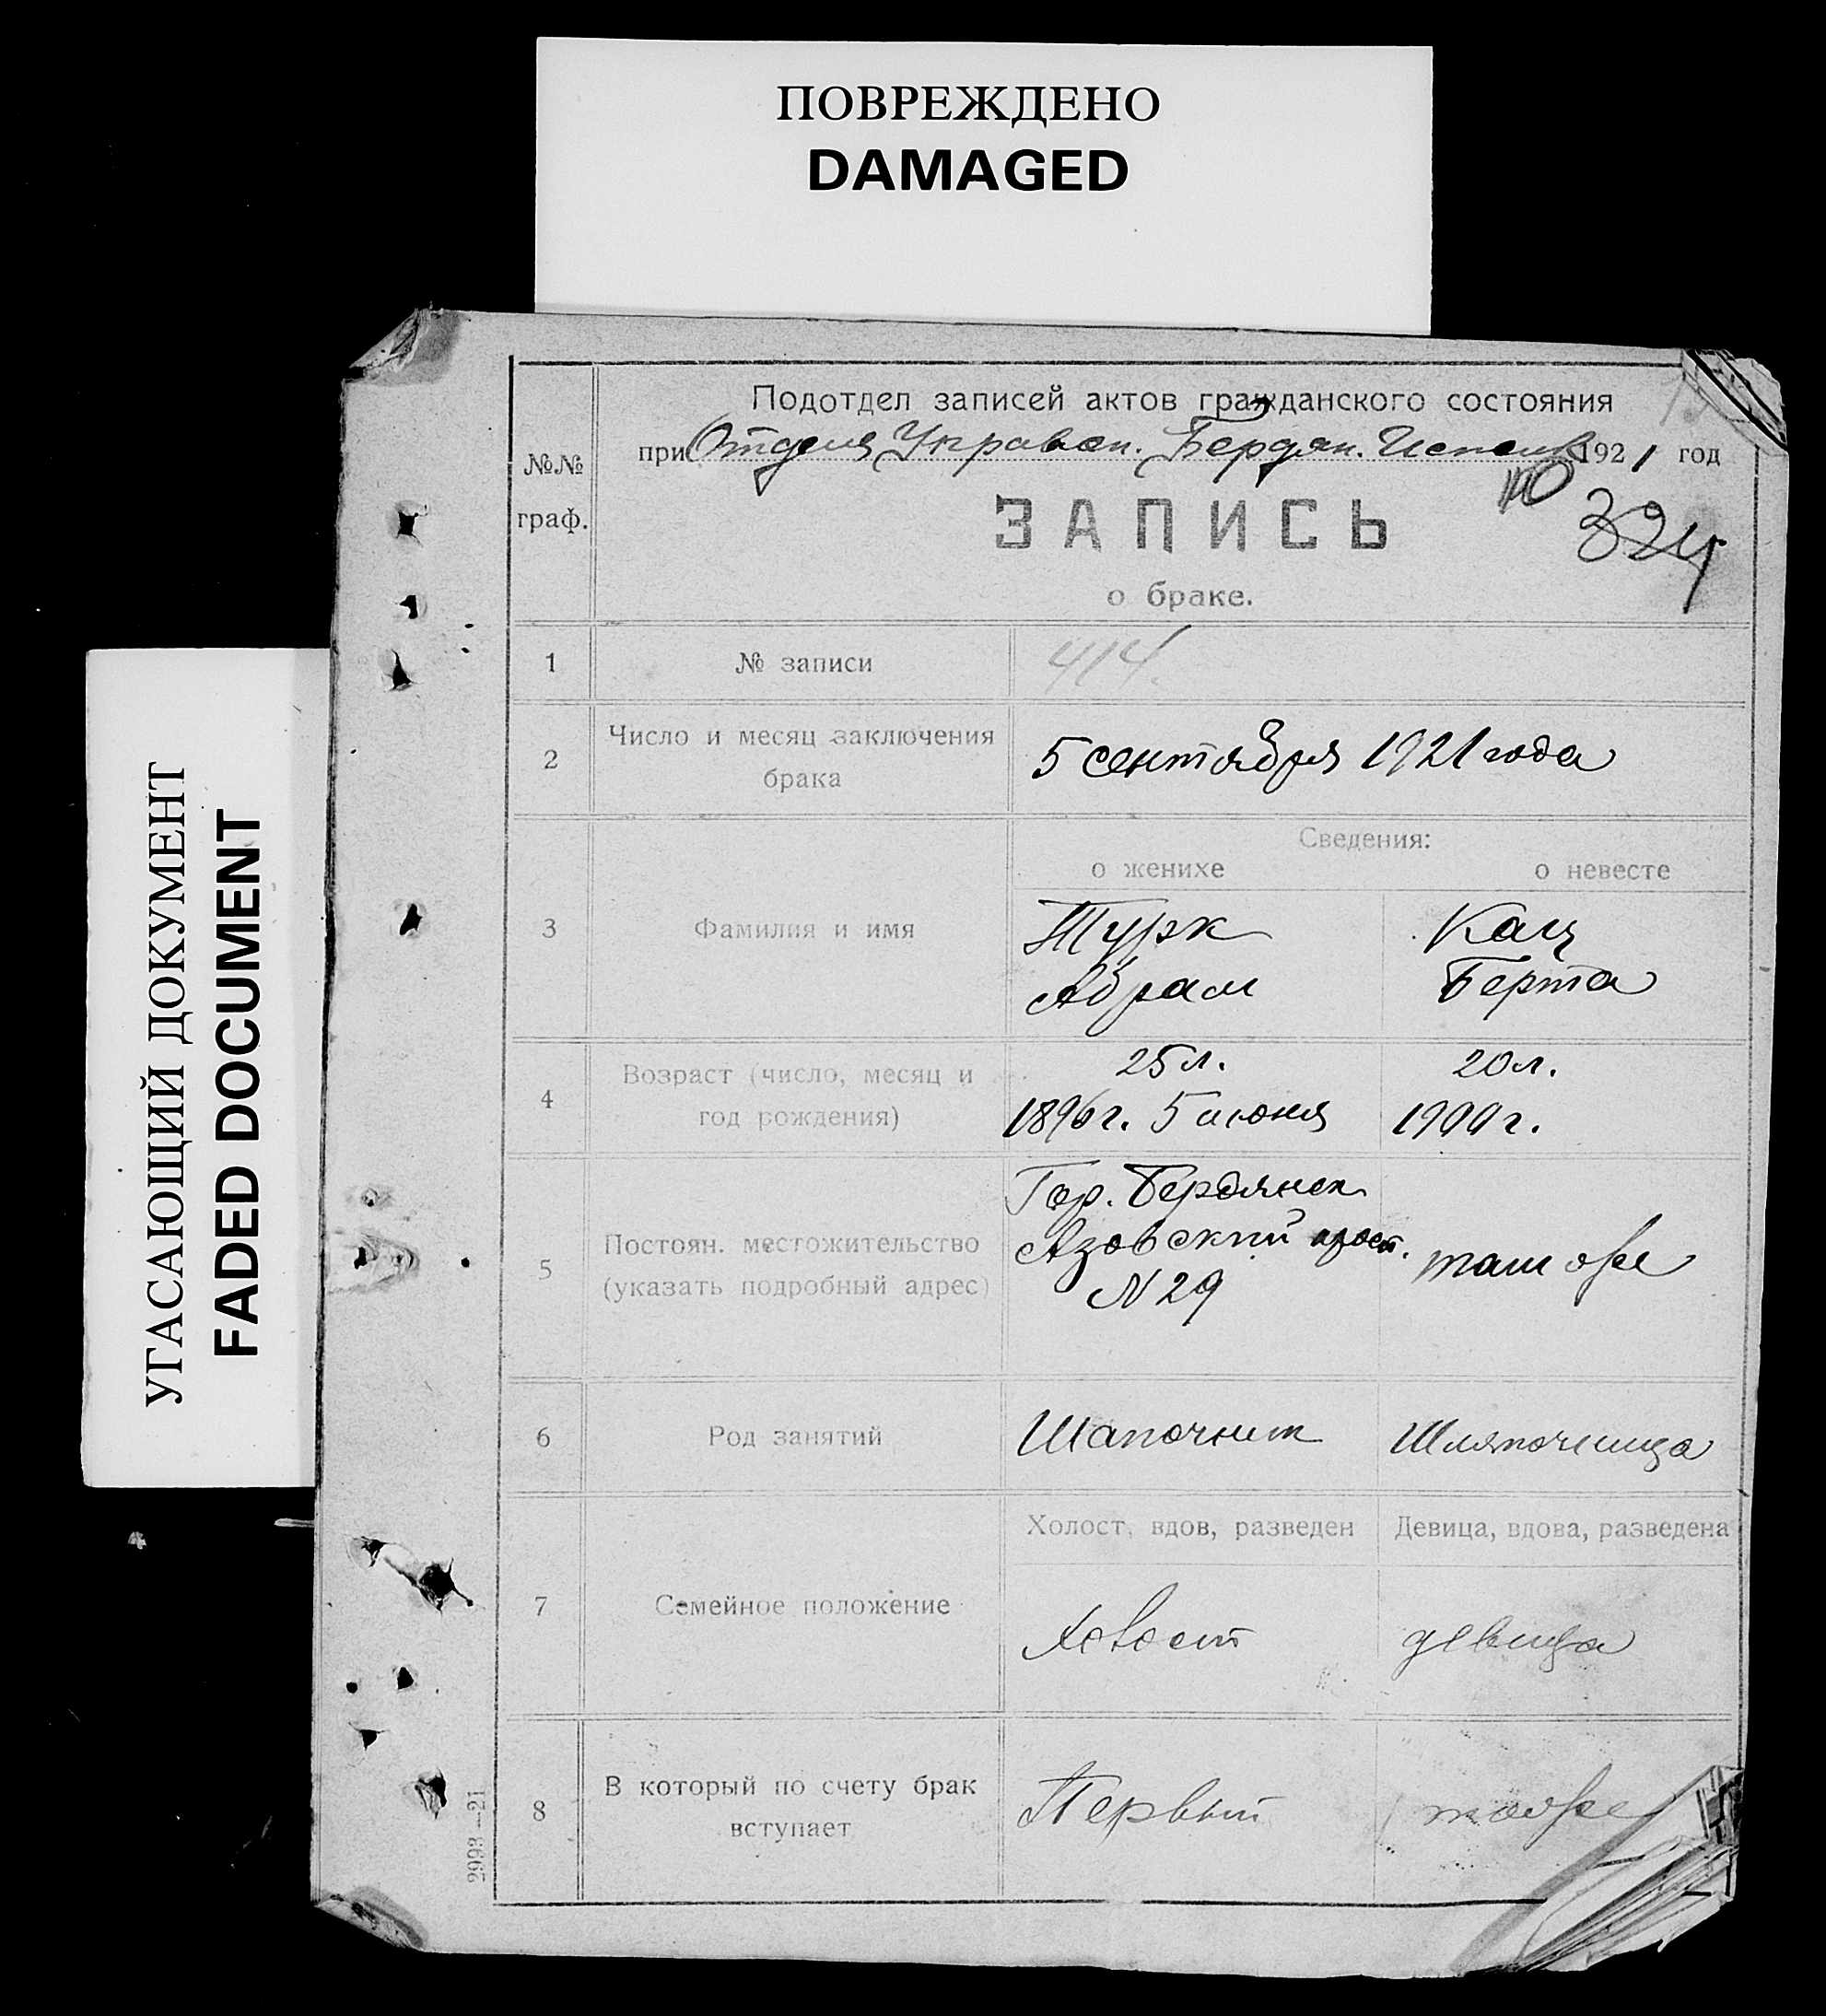 ПОВРЕЖДЕНО
DAMAGED
УГАСАЮЩИЙ ДОКУМЕНТ
FADED DOCUMENT
№№ граф.
Подотдел записей актов гражданского состояния
при Отделе Управлен. Бердян. Исполк 1921 год
ЗАПИСЬ
324
о браке.
1 № записи 414.
2 Число и месяц заключения брака 5 сентября 1921 года
Сведения:
о женихе о невесте
3 Фамилия и имя
Турк Кац
Абрам Берта
4 Возраст (число, месяц и год рождения)
25 л. 20 л.
1896 г. 5 июня 1900 г.
5 Постоян. местожительство (указать подробный адрес)
Гор. Бердянск
Азовский просп. там же
N 29
6 Род занятий Шапочник Шляпочница
Холост, вдов, разведен Девица, вдова, разведена
7 Семейное положение Холост девица
8 В который по счету брак вступает Первый тоже
2993—21